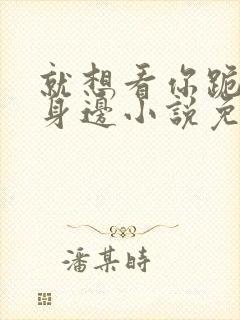 就想看你跪
身邊小説免
潘某時